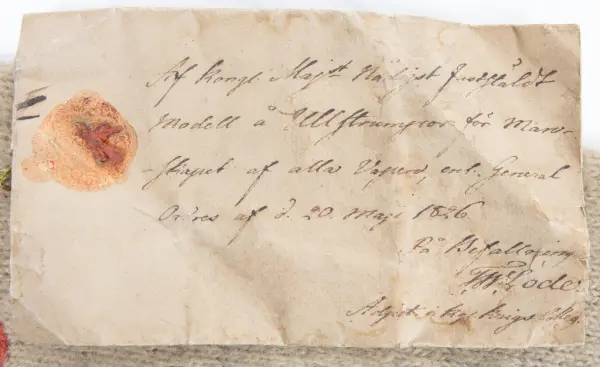 Af Kongl. Majst. Nådigst fastställdt
Modell å Ullstrumpor för Man-
-skapet af alla Vapen, enl. General
Ordres af d. 20. Maji 1826
På Befallning
Lode
Adjut. Krigs